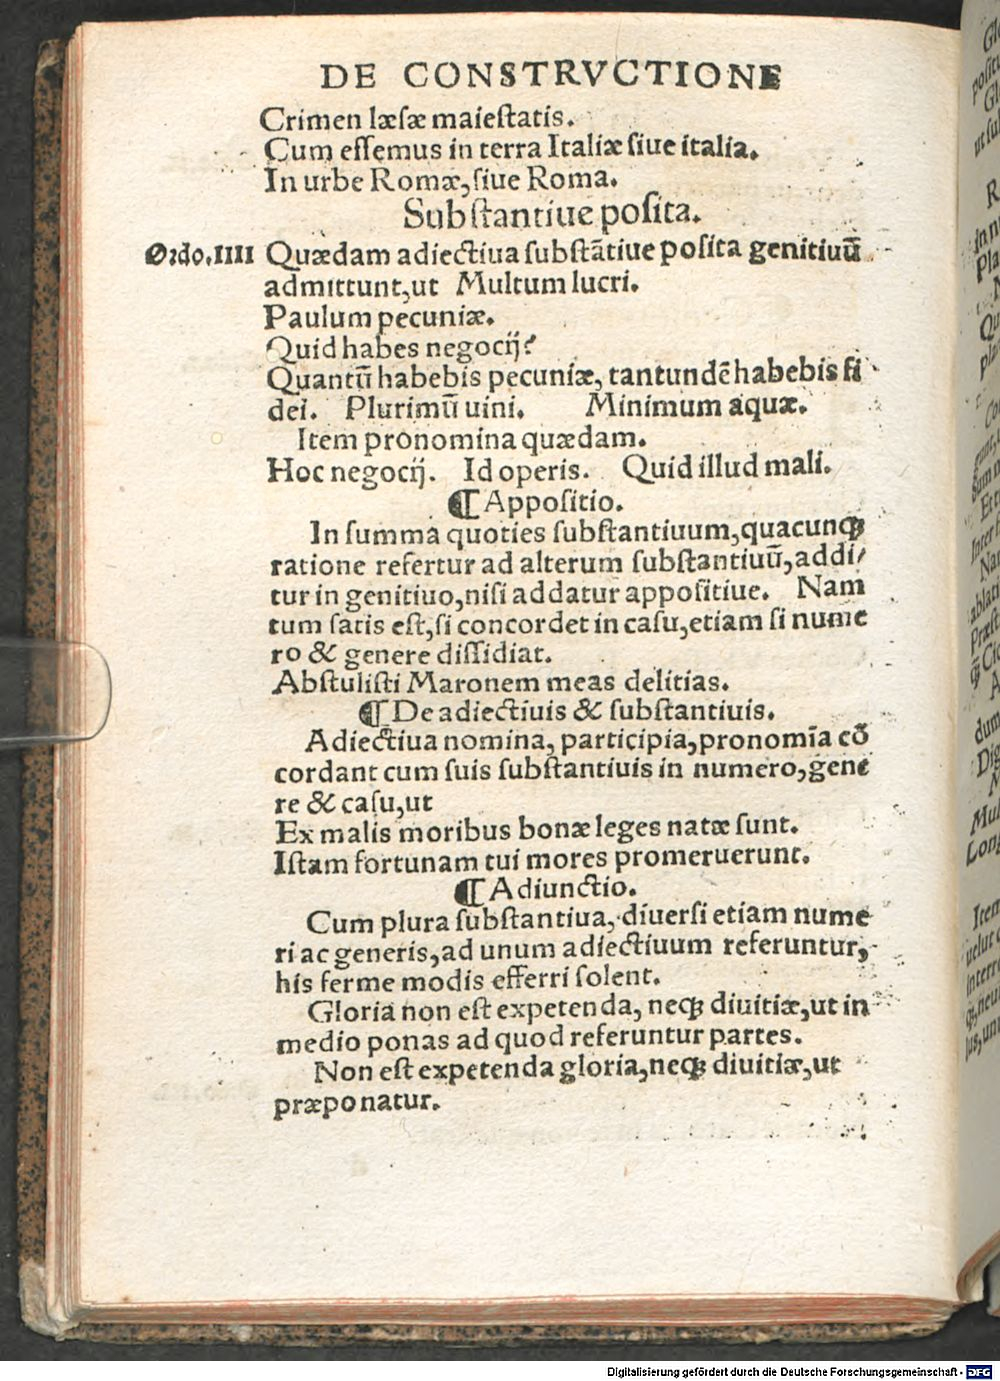 DE CONSTRVCTIONE
Crimen læſæ maieſtatis.
Cum eſſemus in terra Italiæ ſiue italia.
In urbe Romæ, ſiue Roma.
Subſtantiue poſita.
Ordo.IIII Quædam adiectiua ſubſtātiue poſita genitiuū
admittunt, ut Multum lucri.
Paulum pecuniæ.
Quid habes negocij?
Quantū habebis pecuniæ, tantundē habebis fi
dei. Plurimū uini. Minimum aquæ.
Item pronomina quædam.
Hoc negocij. Id operis. Quid illud mali.
¶ Appoſitio.
In ſumma quoties ſubſtantiuum, quacunqꝫ
ratione refertur ad alterum ſubſtantiuū, addi/
tur in genitiuo, niſi addatur appoſitiue. Nam
tum ſatis eſt, ſi concordet in caſu, etiam ſi nume
ro & genere diſſidiat.
Abſtuliſti Maronem meas delitias.
¶ De adiectiuis & ſubſtantiuis.
Adiectiua nomina, participia, pronomīa cō
cordant cum ſuis ſubſtantiuis in numero, gene
re & caſu, ut
Ex malis moribus bonæ leges natæ ſunt.
Iſtam fortunam tui mores promeruerunt.
¶ Adiunctio.
Cum plura ſubſtantiua, diuerſi etiam nume
ri ac generis, ad unum adiectiuum referuntur,
his ferme modis efferri ſolent.
Gloria non eſt expetenda, neqꝫ diuitiæ, ut in
medio ponas ad quod referuntur partes.
Non eſt expetenda gloria, neqꝫ diuitiæ, ut
præponatur.
Digitalisierung gefördert durch die Deutsche Forschungsgemeinschaft - DFG